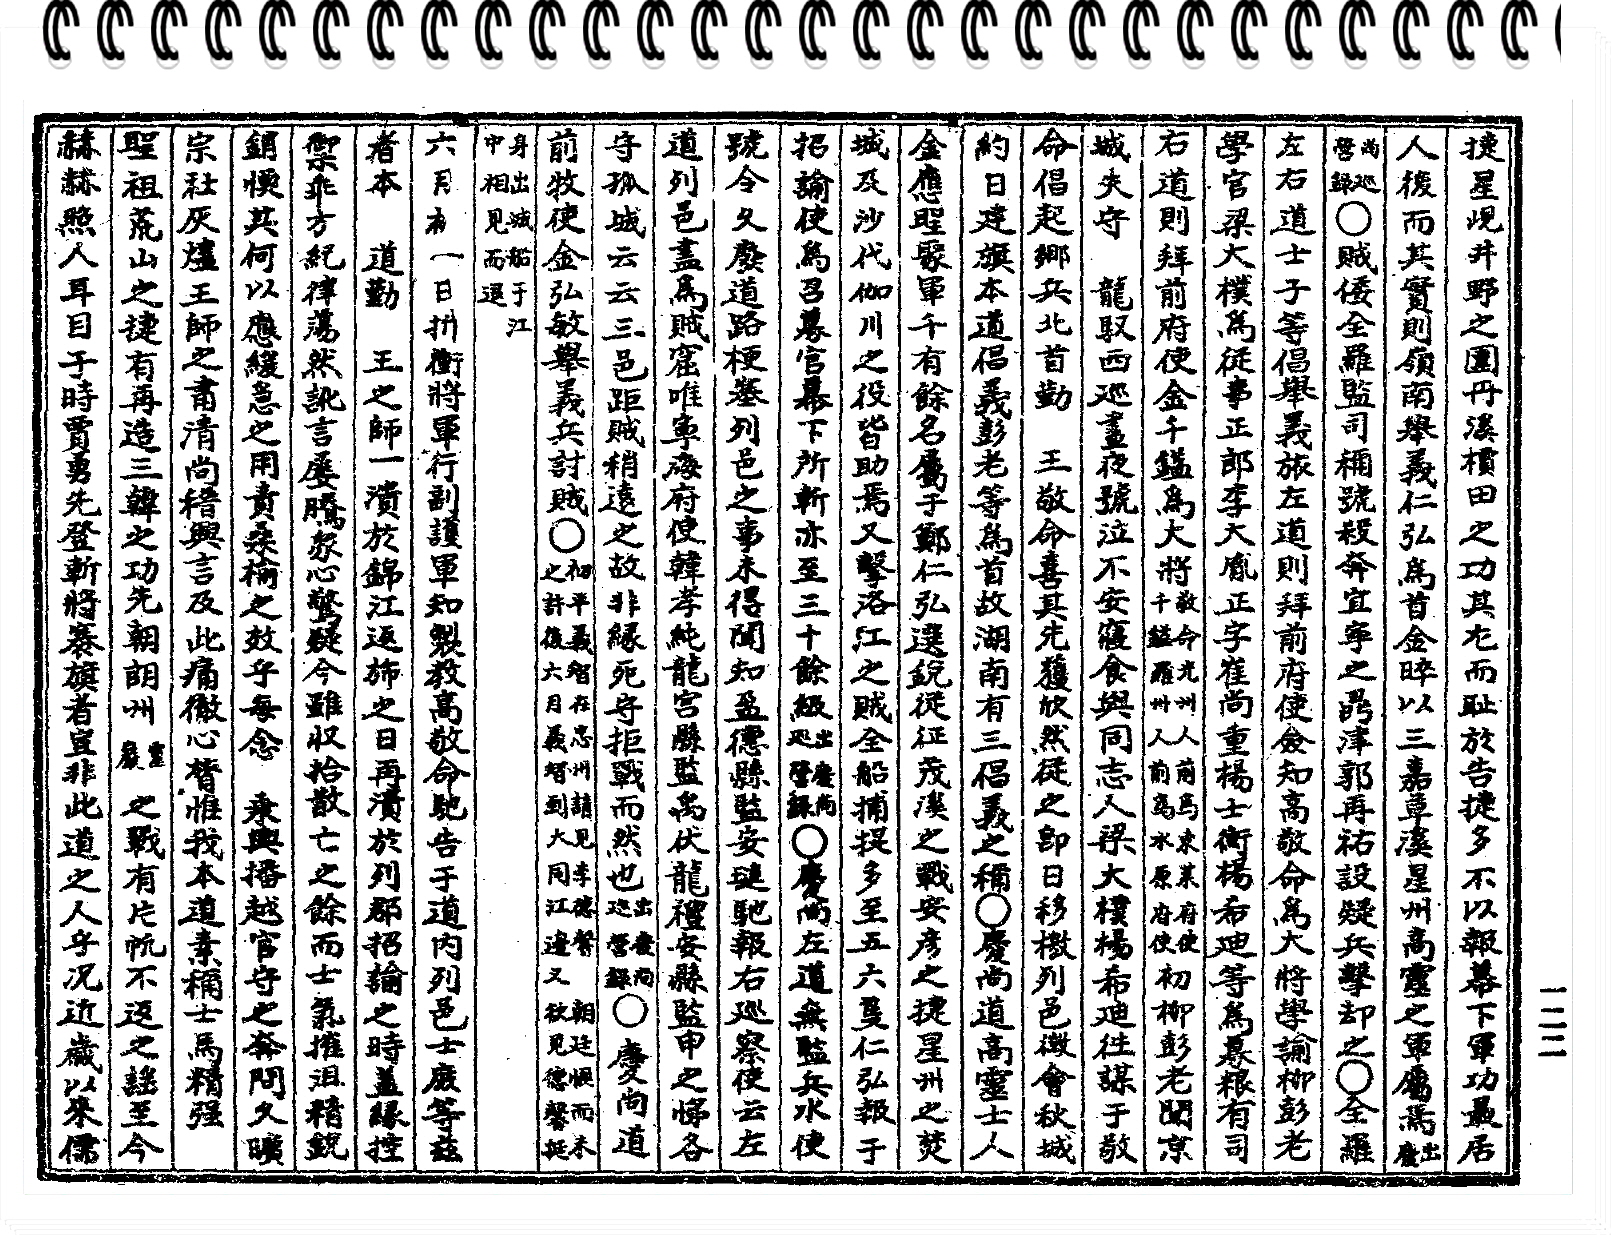 捷星峴井野之圍丹溪櫝田之功其尤而耻於告捷多不以報幕下軍功最居
人後而其實則嶺南舉義仁弘爲首金晬以三嘉草溪星州高靈之軍屬焉出慶
尚巡營錄○賊倭全羅監司稱號殺奔宜寧之鼎津郭再祐設疑兵擊却之○全羅
左右道士子等倡舉義旅左道則拜前府使僉知高敬命爲大將學諭柳彭老
學官梁大樸爲從事正郎李大胤正字崔尚重楊士衡楊希迪等爲募粮有司
右道則拜前府使金千鎰爲大將敬命光州人前爲東萊府使千鎰羅州人前爲水原府使初柳彭老聞京
城失守 龍馭西巡晝夜號泣不安寢食與同志人梁大樸楊希迪徃謀于敬
命倡起鄉兵北首勤 王敬命喜其先獲欣然從之卽日移檄列邑徵會秋城
約日建旗本道倡義彭老等爲首故湖南有三倡義之稱○慶尚道高靈士人
金應聖聚軍千有餘名屬于鄭仁弘選銳從征茂溪之戰安彦之捷星州之焚
城及沙代伽川之役皆助焉又擊洛江之賊全船捕捉多至五六隻仁弘報于
招諭使爲召募官幕下所斬亦至三十餘級出慶尚巡營錄○慶尚左道無監兵水使
號令久廢道路梗塞列邑之事未得聞知盈德縣監安璡馳報右巡察使云左
道列邑盡爲賊窟唯寧海府使韓孝純龍宮縣監禹伏龍禮安縣監申之悌各
守孤城云云三邑距賊稍遠之故非緣死守拒戰而然也出慶尚巡營錄○慶尚道
前牧使金弘敏舉義兵討賊○初平義智在忠州請見李德馨 朝廷悞而未之許後六月義智到大同江邊又欲見德馨挺
身出城船于江中相見而還
六月初一日折衝將軍行副護軍知製教高敬命馳告于道內列邑士庶等玆
者本 道勤 王之師一潰於錦江返旆之日再潰於列郡招諭之時盖緣控
禦乖方紀律蕩然訛言屢騰衆心驚疑今雖收拾散亡之餘而士氣摧沮精銳
銷愞其何以應緩急之用責桑榆之效乎每念 乘輿播越官守之奔問久曠
宗社灰燼王師之肅清尚稽興言及此痛徹心膂惟我本道素稱士馬精强
聖祖荒山之捷有再造三韓之功先朝朗州 靈巖 之戰有片帆不返之謠至今
赫赫照人耳目于時賈勇先登斬將搴旗者豈非此道之人乎况近歲以來儒
一二三